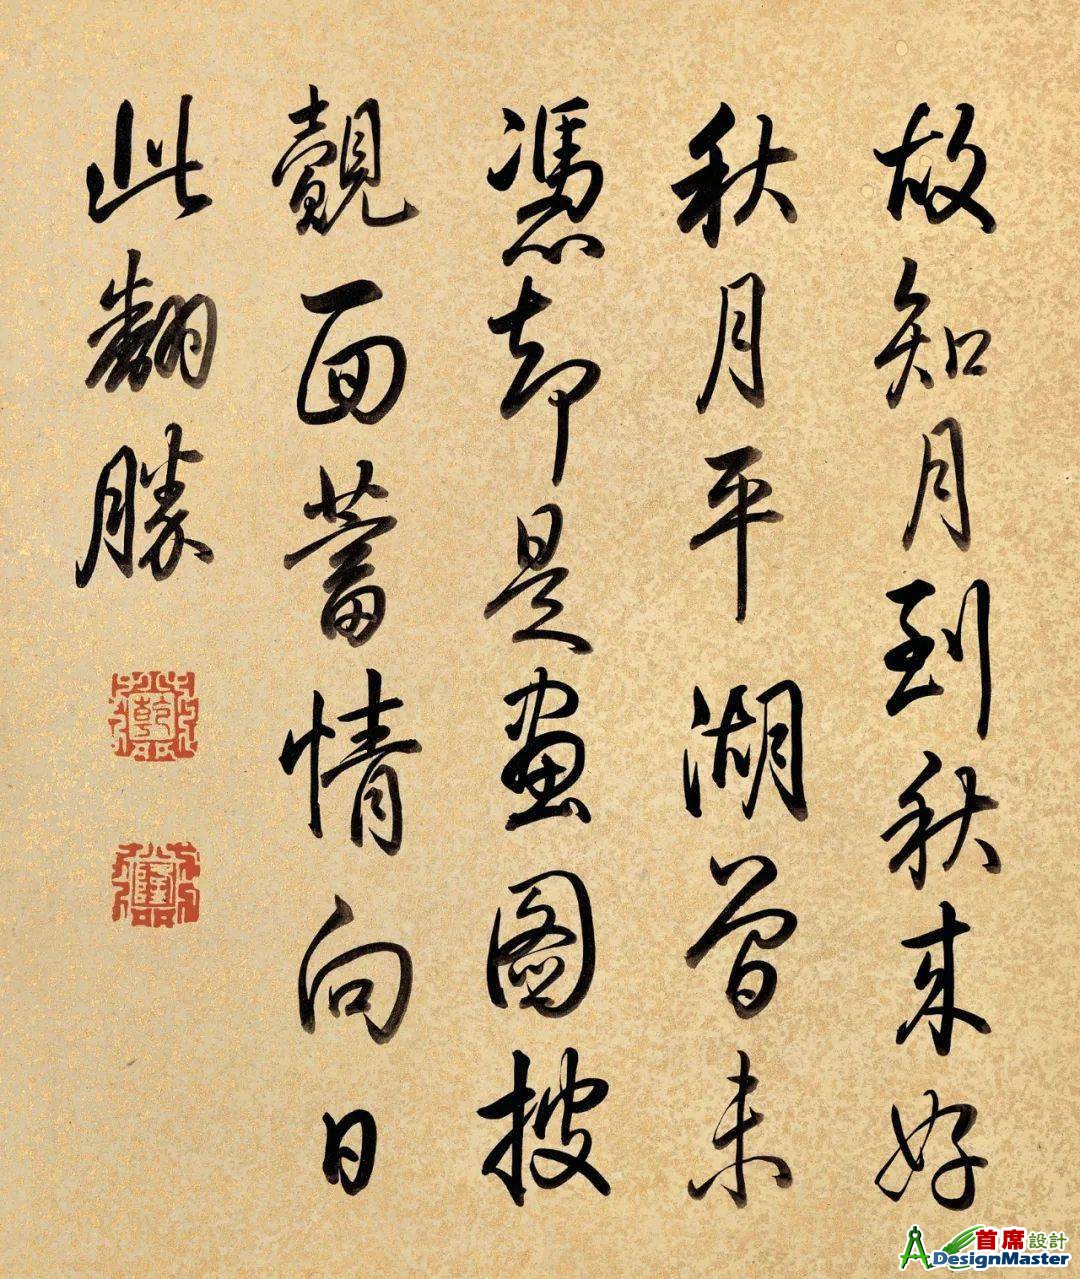 故知月到秋来好
秋月平湖曾未
憑却是画图披
覿面蓄情向日
此翻勝
乾
隆
首席設計
DesignMaster